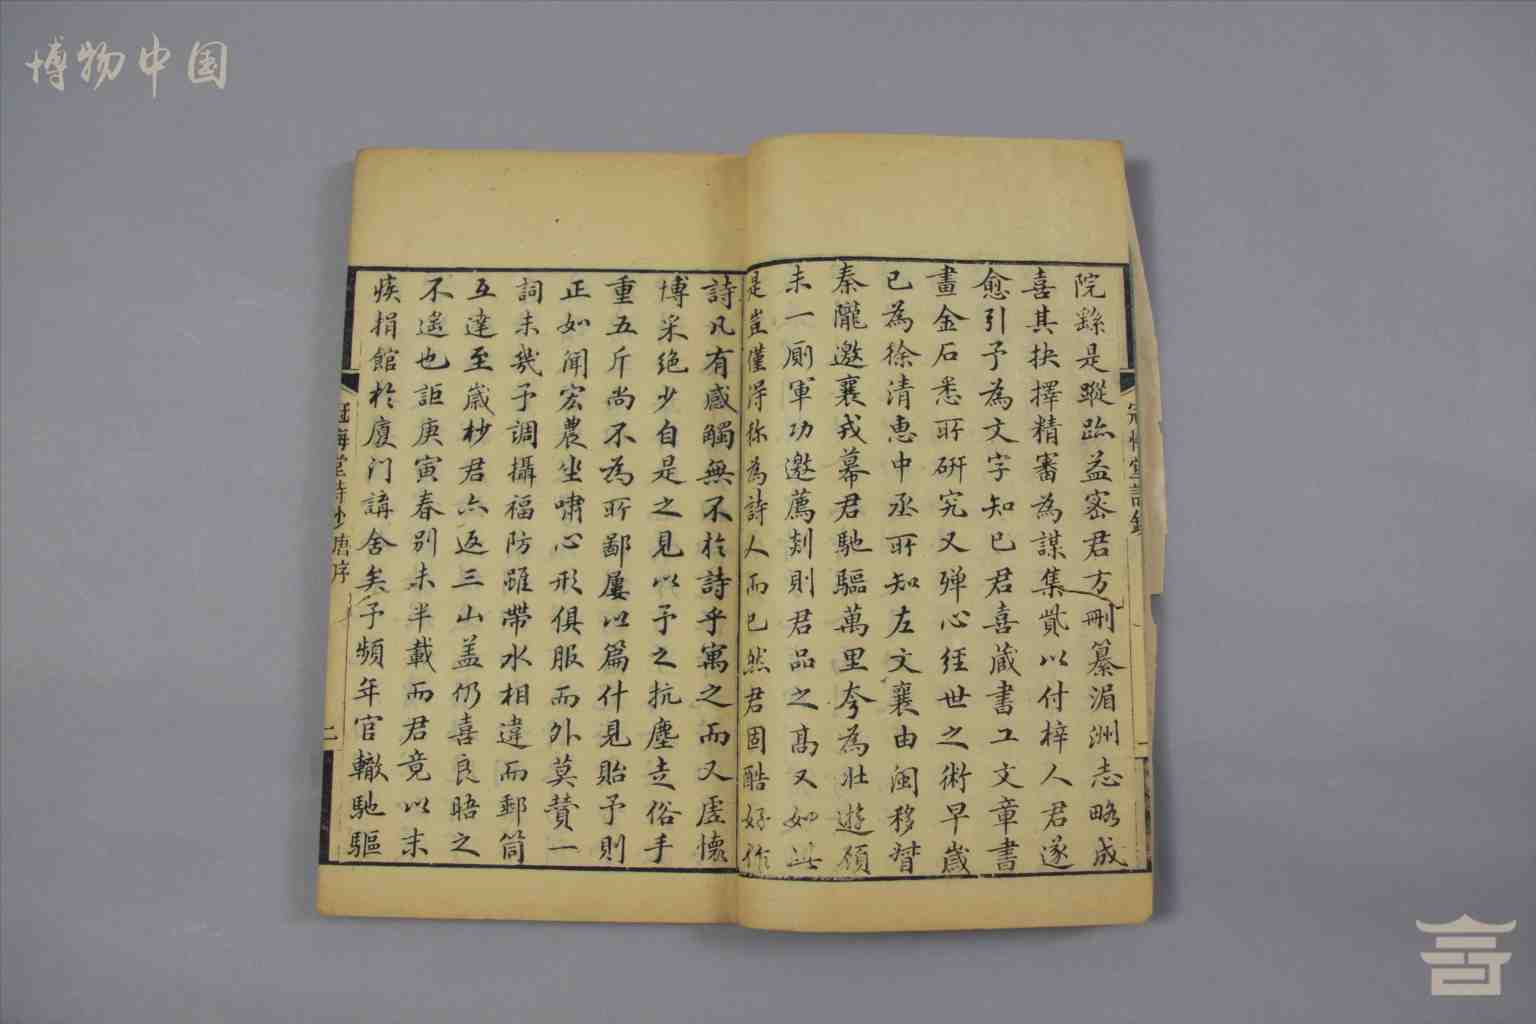 博物中国
院繇是蹤跡益密君方刪纂湄洲志略成
喜其抉擇精審為謀集貲以付梓人君遂
愈引予為文字知己君喜藏書工文章書
畫金石悉所研究又殫心經世之術早歲
已為徐清惠中丞所知左文襄由閩移督
秦隴邀襄戎幕君馳驅萬里夸為壯遊碩
未一厠軍功邀薦剡則君品之高又如此
是豈僅得称為詩人而已然君固酷好作
詩凡有感觸無不於詩乎寓之而又虛懷
博采絶少自是之見以予之抗塵走俗手
重五斤尚不為所鄙屢以篇什見貽予則
正如聞宏農坐嘯心形俱服而外莫賛一
詞未幾予調攝福防雖帶水相違而郵筒
互達至歲杪君亦返三山盖仍喜良晤之
不遙也詎庚寅春別未半載而君竟以末
疾捐館於廈门講舍矣予頻年官轍馳驅
冠悔堂詩鈔
冠悔堂詩鈔 唐序 二